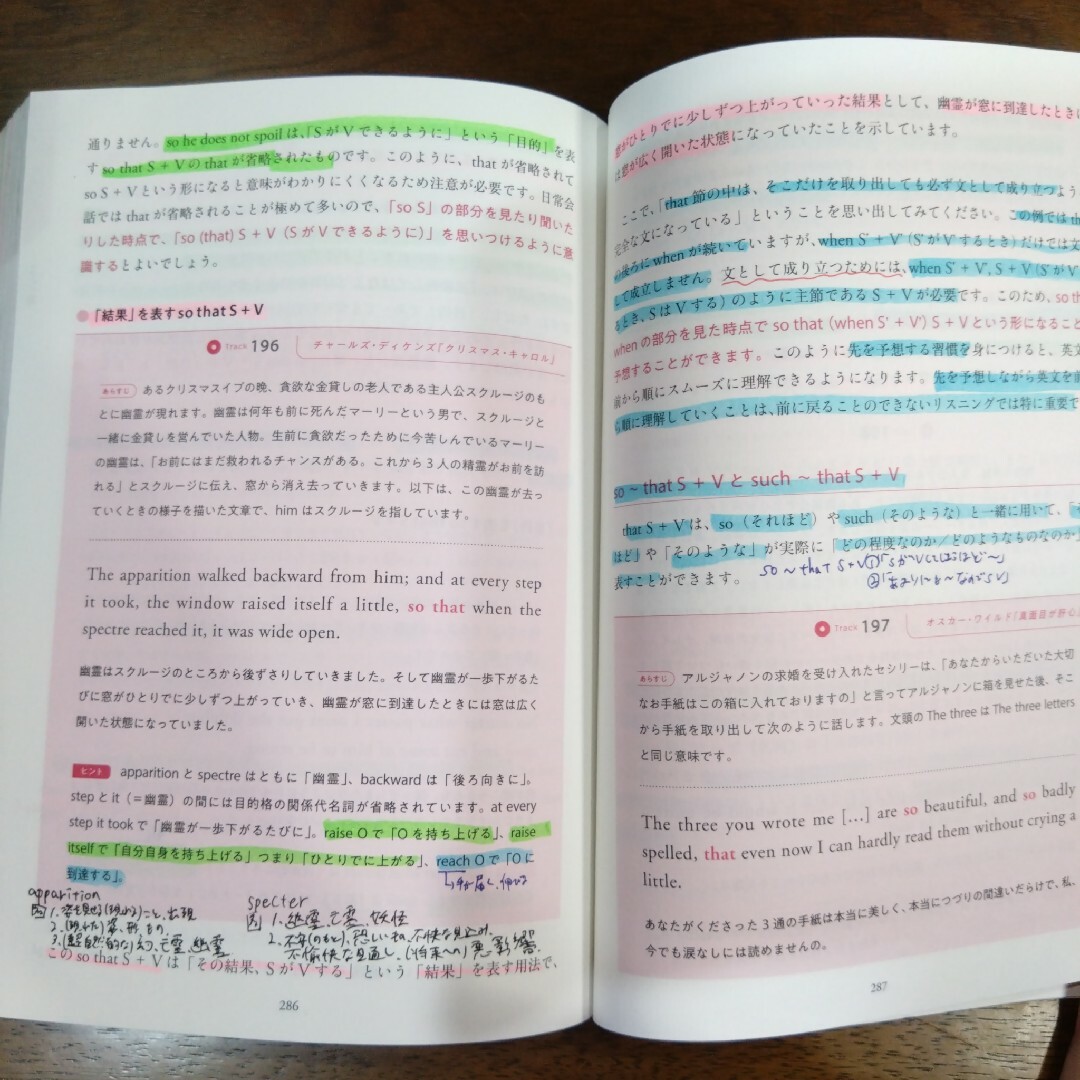 通りません。so he does not spoil は、「S が V できるように」という「目的」を表
す so that S + V の that が省略されたものです。このように、that が省略されて
so S + V という形になると意味がわかりにくくなるため注意が必要です。日常会
話では that が省略されることが極めて多いので、「so S」の部分を見たり聞いた
りした時点で、「so (that) S + V（S が V できるように）」を思いつけるように意
識するとよいでしょう。
「結果」を表す so that S + V
Track 196 チャールズ・ディケンズ『クリスマス・キャロル』
あらすじ あるクリスマスイブの晩、貪欲な金貸しの老人である主人公スクルージのも
とに幽霊が現れます。幽霊は何年も前に死んだマーリーという男で、スクルージと
一緒に金貸しを営んでいた人物。生前に貪欲だったために今苦しんでいるマーリー
の幽霊は、「お前にはまだ救われるチャンスがある。これから 3 人の精霊がお前を訪
れる」とスクルージに伝え、窓から消え去っていきます。以下は、この幽霊が去っ
ていくときの様子を描いた文章で、him はスクルージを指しています。
The apparition walked backward from him; and at every step
it took, the window raised itself a little, so that when the
spectre reached it, it was wide open.
幽霊はスクルージのところから後ずさりしていきました。そして幽霊が一歩下がるた
びに窓がひとりでに少しずつ上がっていき、幽霊が窓に到達したときには窓は広く
開いた状態になっていました。
ヒント apparition と spectre はともに「幽霊」、backward は「後ろ向きに」。
step と it（＝幽霊）の間には目的格の関係代名詞が省略されています。at every
step it took で「幽霊が一歩下がるたびに」。raise O で「O を持ち上げる」、raise
itself で「自分自身を持ち上げる」つまり「ひとりでに上がる」、reach O で「O に
到達する」。
apparition
1. 姿を見せる(現れる)こと、出現
2. (現れた)姿、形、もの
3. (超自然的な)幻、亡霊、幽霊
specter
1. 幽霊、亡霊、妖怪
不愉快な見通し、(将来への)悪影響
この so that S + V は「その結果、S が V する」という「結果」を表す用法で、
286
窓がひとりでに少しずつ上がっていった結果として、幽霊が窓に到達したときに
は窓が広く開いた状態になっていたことを示しています。
ここで、「that 節の中は、そこだけを取り出しても必ず文として成り立つよう
完全な文になっている」ということを思い出してみてください。この例では th
の後ろに when が続いていますが、when S' + V'（S' が V' するとき）だけでは文
して成立しません。文として成り立つためには、when S' + V', S + V（S' が V'
るとき、S は V する）のように主節である S + V が必要です。このため、so th
when の部分を見た時点で so that (when S' + V') S + V という形になること
予想することができます。このように先を予想する習慣を身につけると、英文
前から順にスムーズに理解できるようになります。先を予想しながら英文を前
ら順に理解していくことは、前に戻ることのできないリスニングでは特に重要で
so ~ that S + V と such ~ that S + V
that S + V は、so（それほど）や such（そのような）と一緒に用いて、「そ
ほど」や「そのような」が実際に「どの程度なのか／どのようなものなのか」
表すことができます。
so ~ that S+V ①「SがVするほど~」
②「あまりにも~なのでSV」
Track 197 オスカー・ワイルド『真面目が肝心
あらすじ アルジャノンの求婚を受け入れたセシリーは、「あなたからいただいた大切
なお手紙はこの箱に入れておりますの」と言ってアルジャノンに箱を見せた後、そこ
から手紙を取り出して次のように話します。文頭の The three は The three letters
と同じ意味です。
The three you wrote me [...] are so beautiful, and so badly
spelled, that even now I can hardly read them without crying a
little.
あなたがくださった 3 通の手紙は本当に美しく、本当につづりの間違いだらけで、私、
今でも涙なしには読めませんの。
287